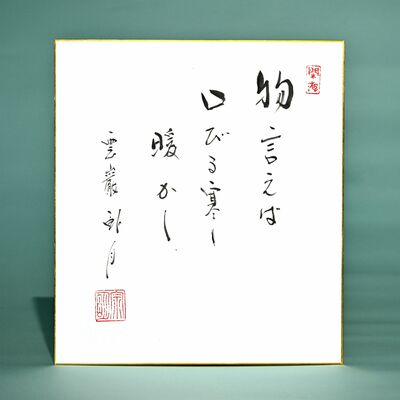 物言えば
口びる寒し
暖かし
雲巌卧月